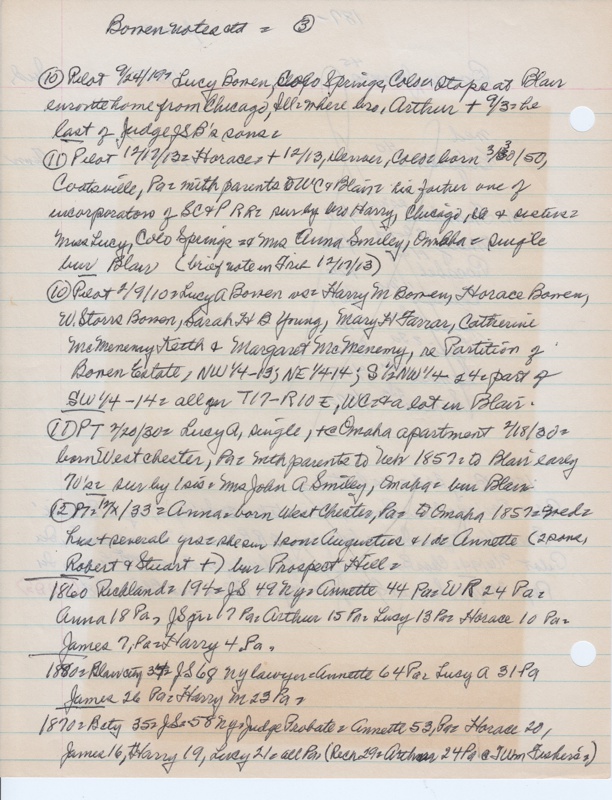 Bowen notes ctd = ③
⑩ Pilot 9/24/19= Lucy Bowen, Colo Springs, Colo= stops at Blair
enroute home from Chicago, Ill= where bro, Arthur + 9/3= he
last of Judge JSB's sons=
⑪ Pilot 12/17/13= Horace= + 12/13, Denver, Colo= born 3/30/50,
Coatsville, Pa= with parents to WC & Blair= his father one of
incorporators of SC&P RR= sur by bro Harry, Chicago, Ill & sisters=
Miss Lucy, Colo Springs = & Mrs Anna Smiley, Omaha = single
bur Blair (brief note in Trib 12/17/13)
⑩ Pilot 2/9/10= Lucy A Bowen vs= Harry M Bowen, Horace Bowen,
W. Storrs Bowen, Sarah H B Young, Mary H Farrar, Catherine
McMenemy Keith & Margaret McMenemy, re Partition of
Bowen Estate, NW 1/4-13; NE 1/4 14; S 1/2 NW 1/4 & part of
SW 1/4-14= all in T17-R10 E, WC= & a lot in Blair.
⑪ PT 2/20/30= Lucy A, single, + @ Omaha apartment 2/18/30=
born West chester, Pa= with parents to Neb 1857= to Blair early
70s= sur by 1 sis= Mrs John A Smiley, Omaha= bur Blair
⑫ PT= /33= Anna= born West Chester, Pa= to Omaha 1857=
hus + several yrs= she sur 1 son= Augustus & 1 d= Annette (2 sons,
Robert & Stuart +) bur Prospect Hill=
1860 Richland= 194= JS 49 Ny= Annette 44 Pa= WR 24 Pa=
Anna 18 Pa, JS jr= 17 Pa= Arthur 15 Pa= Lucy 13 Pa= Horace 10 Pa=
James 7, Pa= Harry 4 Pa.
1880= Blair city 34= JS 68 ny lawyer= Annette 64 Pa= Lucy A 31 Pa
James 26 Pa= Harry M 23 Pa=
1870= Bcty 35= JS= 58 Ny= Judge Probate= Annette 53, Pa= Horace 20,
James 16, Harry 19, Lucy 21= all Pa= (Rich 29= Arthur 24 Pa @ Wm Fisher's=)